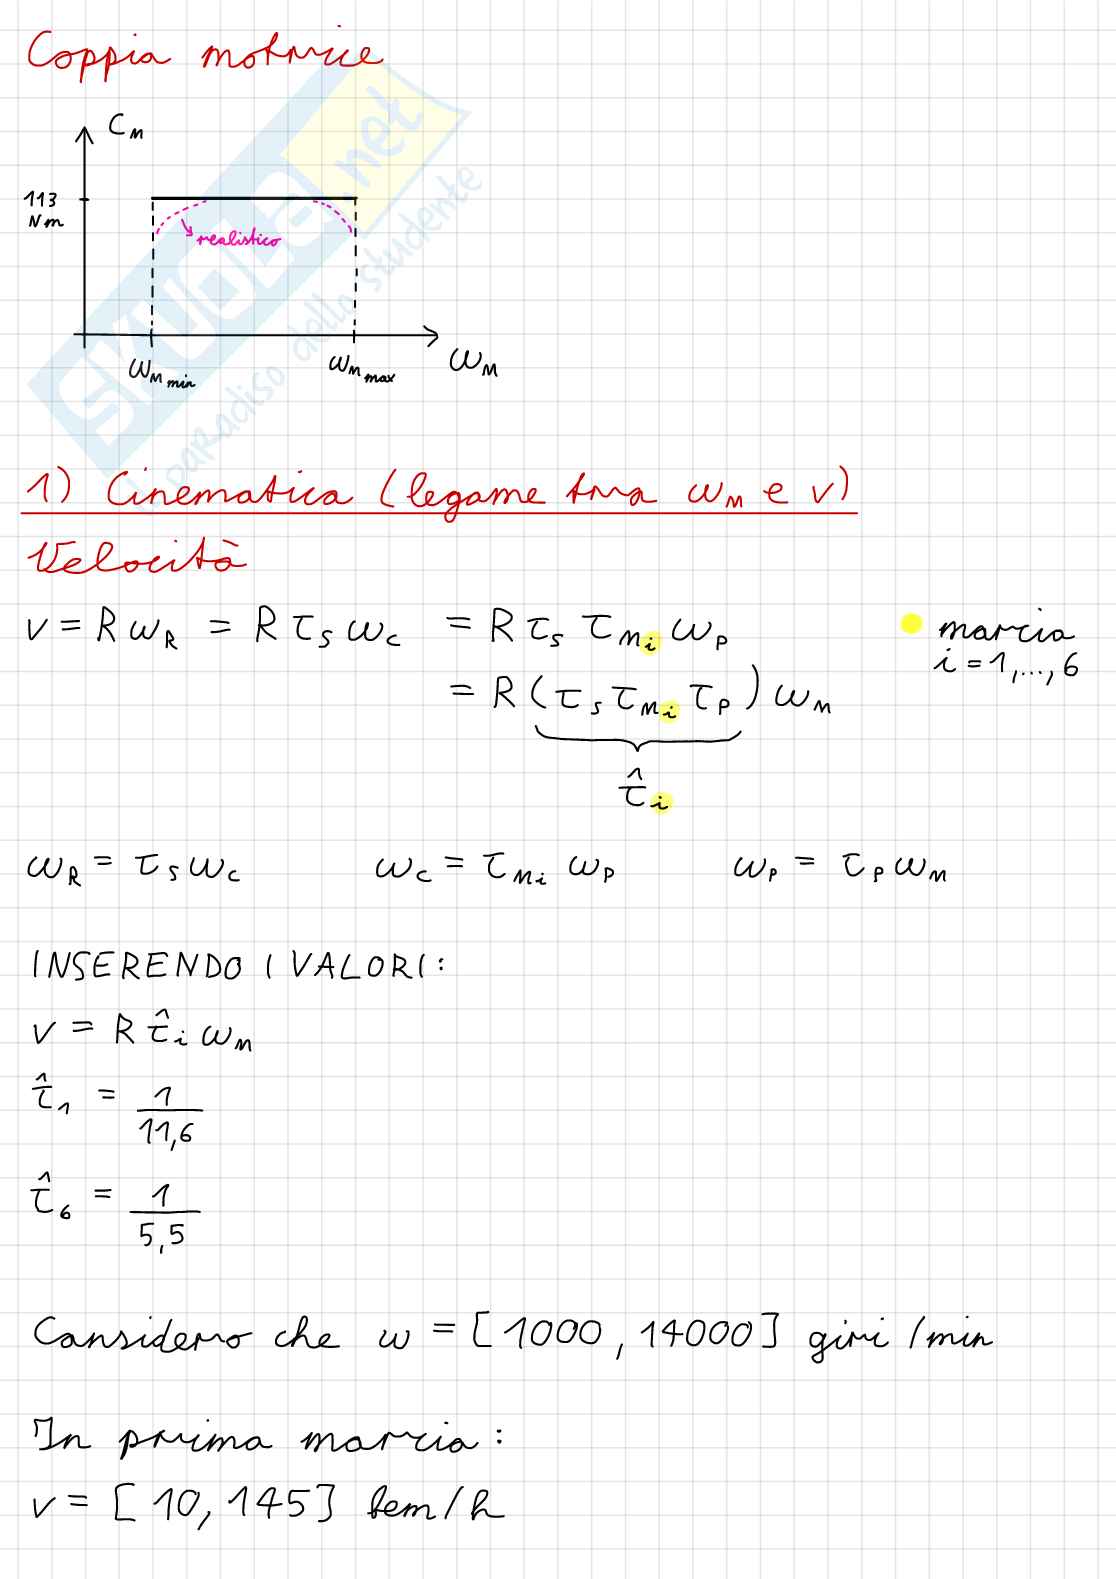 Coppia motrice
C_M
113
Nm
realistico
ω_M min
ω_M max
ω_M
SKUOLA.net
il paradiso dello studente
1) Cinematica (legame tra ω_M e v)
Velocità
v = R ω_R = R τ_S ω_C = R τ_S τ_Mi ω_P
marcia
i = 1,...,6
= R (τ_S τ_Mi τ_P) ω_M
τ̂_i
ω_R = τ_S ω_C ω_C = τ_Mi ω_P ω_P = τ_P ω_M
INSERENDO I VALORI:
v = R τ̂_i ω_M
τ̂_1 = 1/11,6
τ̂_6 = 1/5,5
Considero che ω = [1000, 14000] giri/min
In prima marcia:
v = [10, 145] km/h